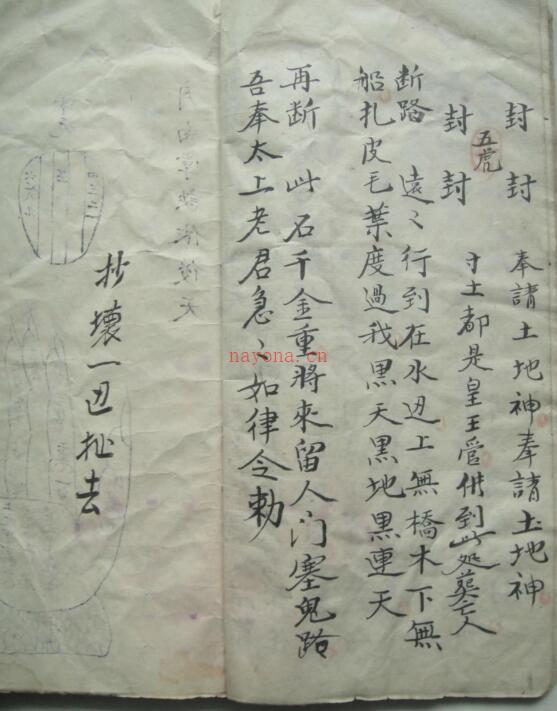 封 封 奉請土地神奉請土地神
五虎
封 封 寸土都是皇王管併到此処葬亡人
断路 遠〻行到在水边上無橋木下無
船扎皮毛葉度過我黑天黑地黑連天
再断 此石千金重將來留人门塞鬼路
吾奉太上老君急〻如律令勅
抄壞一边扯去
nayona.cn